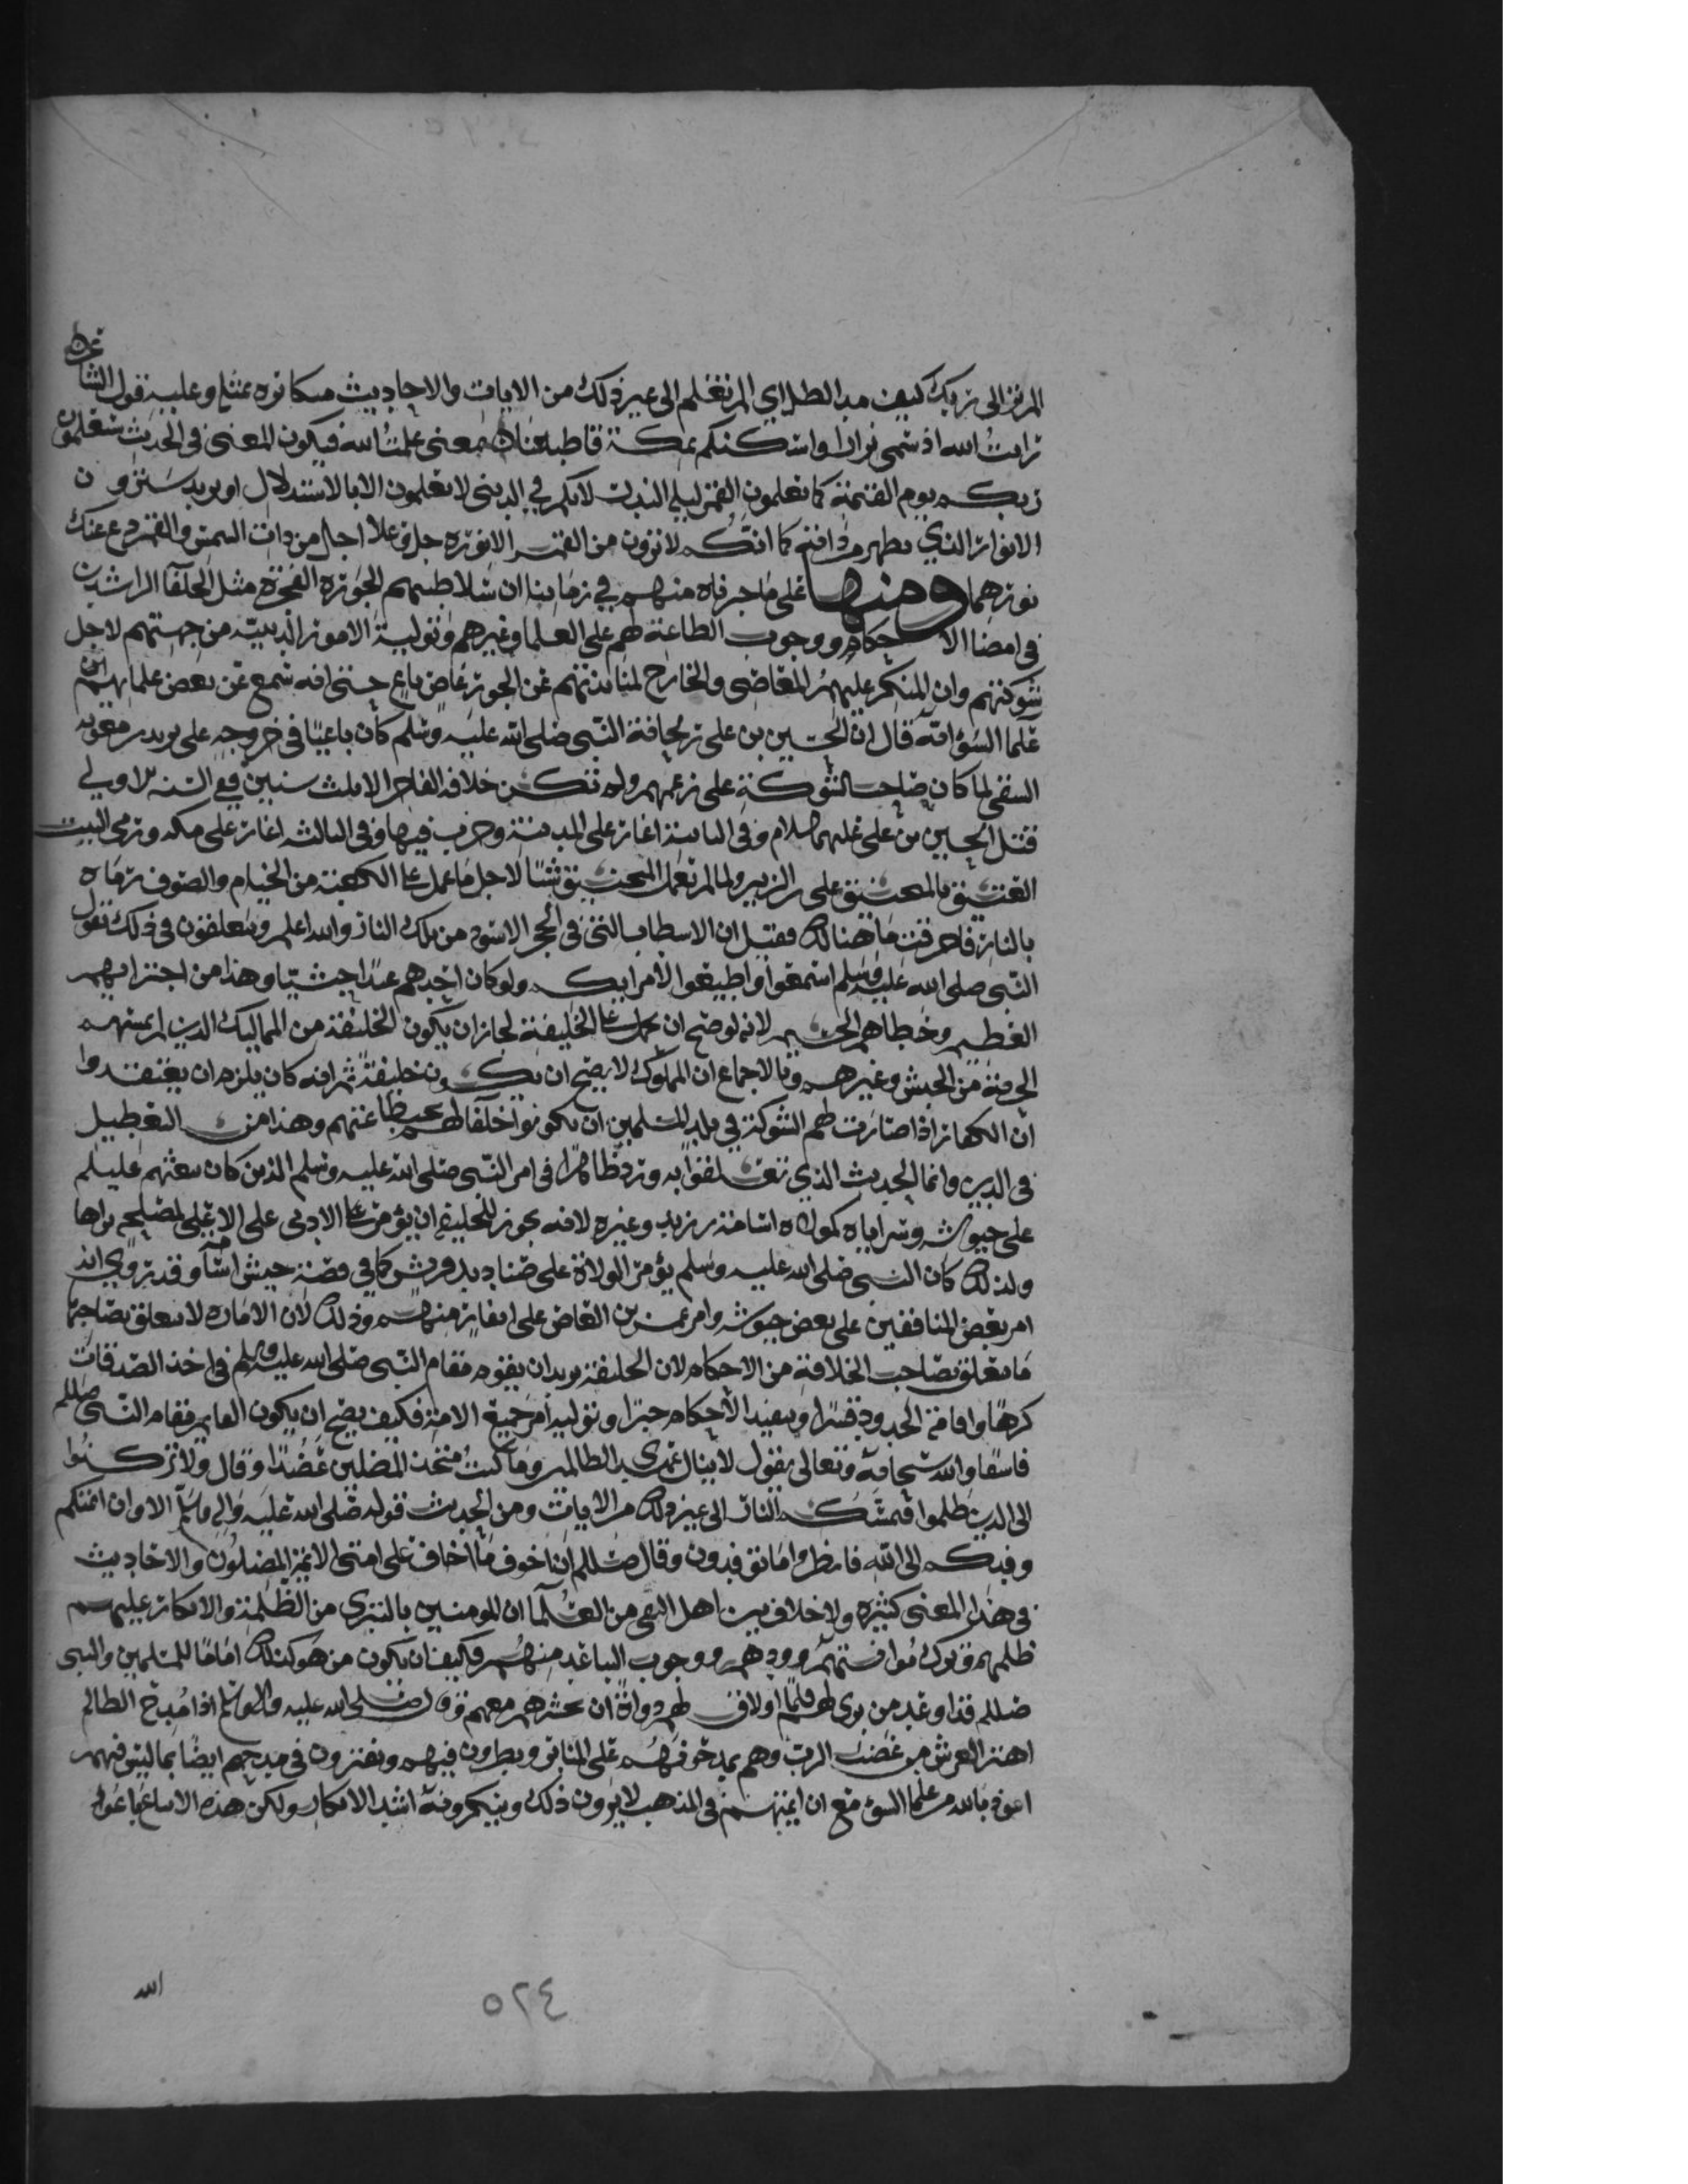 الم تر الى ربك كيف مد الظل اي الم تعلم الى غير ذلك من الايات والاحاديث وعليه قول الشاعر
رايت الله اذ سمى نزارا واسكنكم بمكة قاطبينا اي بمعنى علمت الله فيكون المعنى في الحديث ستعلمون
ربكم يوم القيمة كما تعلمون القمر ليلة البدر لانكم في الدنيا لا تعلمون الا بالاستدلال او يريد سترون
الانوار الذي يظهر من ذاته كما انكم لا ترون من القمر الا نوره جل وعلا اجل من ذات الشمس والقمر دع عنك
نورهما ومنها على ما عرفناه منهم في زماننا ان سلاطينهم الجورة الفجرة مثل الخلفا الراشدين
في امضا الاحكام ووجوب الطاعة لهم على العلما وغيرهم وتولية الامور الدينية من جهتهم لاجل
شوكتهم وان المنكر عليهم المعاصي والخارج لمنابذتهم عن الجور عاص باغ حتى انه سمع عن بعض علمائهم
علما السؤ انه قال ان الحسين بن علي ريحانة النبي صلى الله عليه وسلم كان باغيا في خروجه على يزيد بن معوية
الشقي لما كان صاحب الشوكة على زعمهم ولم تكن خلافة الفاجر الا ثلث سنين ففي السنة الاولى
قتل الحسين بن علي عليهما السلام وفي الثانية اغار على المدينة وخرب فيها وفي الثالثة اغار على مكة ورمى البيت
العتيق بالمنجنيق على بن الزبير ولما لم تعمل المنجنيق شيئا لاجل ما عمل على الكعبة من الخيام والصوف رماه
بالنار فاحرقت ما هنالك فقيل ان الاسطاب التي في الحجر الاسود من تلك النار والله اعلم ويتعلقون في ذلك بقول
النبي صلى الله عليه وسلم اسمعوا واطيعوا لامرائكم ولو كان احدهم عبدا حبشيا وهذا من اجترائهم
العظيم وخطاهم الجسيم لانه لو صح ان يحمل على الخليفة لجاز ان يكون الخليفة من المماليك الذين لم يمسهم
الحرية من الحبش وغيرهم وبالاجماع ان المملوك لا يصح ان يكون خليفة ثم انه كان يلزم ان يعتقدوا
ان الكفار اذا صارت لهم الشوكة في بلد المسلمين ان يكونوا خلفا لهم يجب طاعتهم وهذا من التعطيل
في الدين وانما الحديث الذي تعلقوا به ورد ظاهرا في امر النبي صلى الله عليه وسلم الذين كان بعثهم عليلم
على جيوشه وسراياه كمولاه اسامة بن زيد وغيره لانه يجوز للخليفة ان يؤمر على الادنى على الاعلى لمصلحة يراها
ولذلك كان النبي صلى الله عليه وسلم يؤمر الولاة على صناديد قريش كما في قصة جيش اسامة وقد روي انه
امر بعض المنافقين على بعض جيوشه وامر عمرو بن العاص على منهم وذلك لان الامارة لا يتعلق بصاحبها
ما يتعلق بصاحب الخلافة من الاحكام لان الخليفة يريد ان يقوم مقام النبي صلى الله عليه وسلم في اخذ الصدقات
كرها واقامة الحدود قسرا وتنفيذ الاحكام جبرا وتوليه امر جميع الامة فكيف يصح ان يكون القايم مقام النبي صللم
فاسقا والله سبحانه وتعالى يقول لا ينال عهدي الظالمين وما كنت متخذ المضلين عضدا وقال ولا تركنوا
الى الذين ظلموا فتمسكم النار الى غير ذلك من الايات ومن الحديث قوله صلى الله عليه واله وسلم الا وان ائمتكم
وفدكم الى الله فانظروا ما توفدون وقال صللم انا اخوف ما اخاف على امتي الائمة المضلون والاحاديث
في هذا المعنى كثيرة ولا خلاف بين اهل التقى من العلما ان المومنين بالتبري من الظلمة والانكار عليهم
ظلمهم وترك موافقتهم وودهم ووجوب التباعد منهم فكيف ان يكون من هو كذلك اماما للمسلمين والنبي
صللم قد اوعد من برى لهم قلما او لاق لهم دواة ان يحشرهم معهم وقال صلى الله عليه واله وسلم اذا مدح الظالم
اهتز العرش من غضب الرب وهم يمدحونهم على المنابر ويطرون فيهم ويفترون في مدحهم ايضا بما ليس فيهم
اعوذ بالله من علما السوء مع ان ائمتهم في المذهب لا يرون ذلك وينكرونه اشد الانكار ولكن هذه الاتباع
الله
٥٢٤